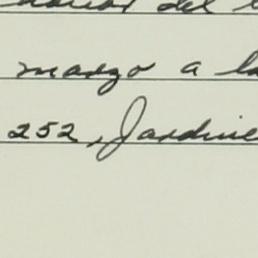 del
marzo a la
252, Jardine